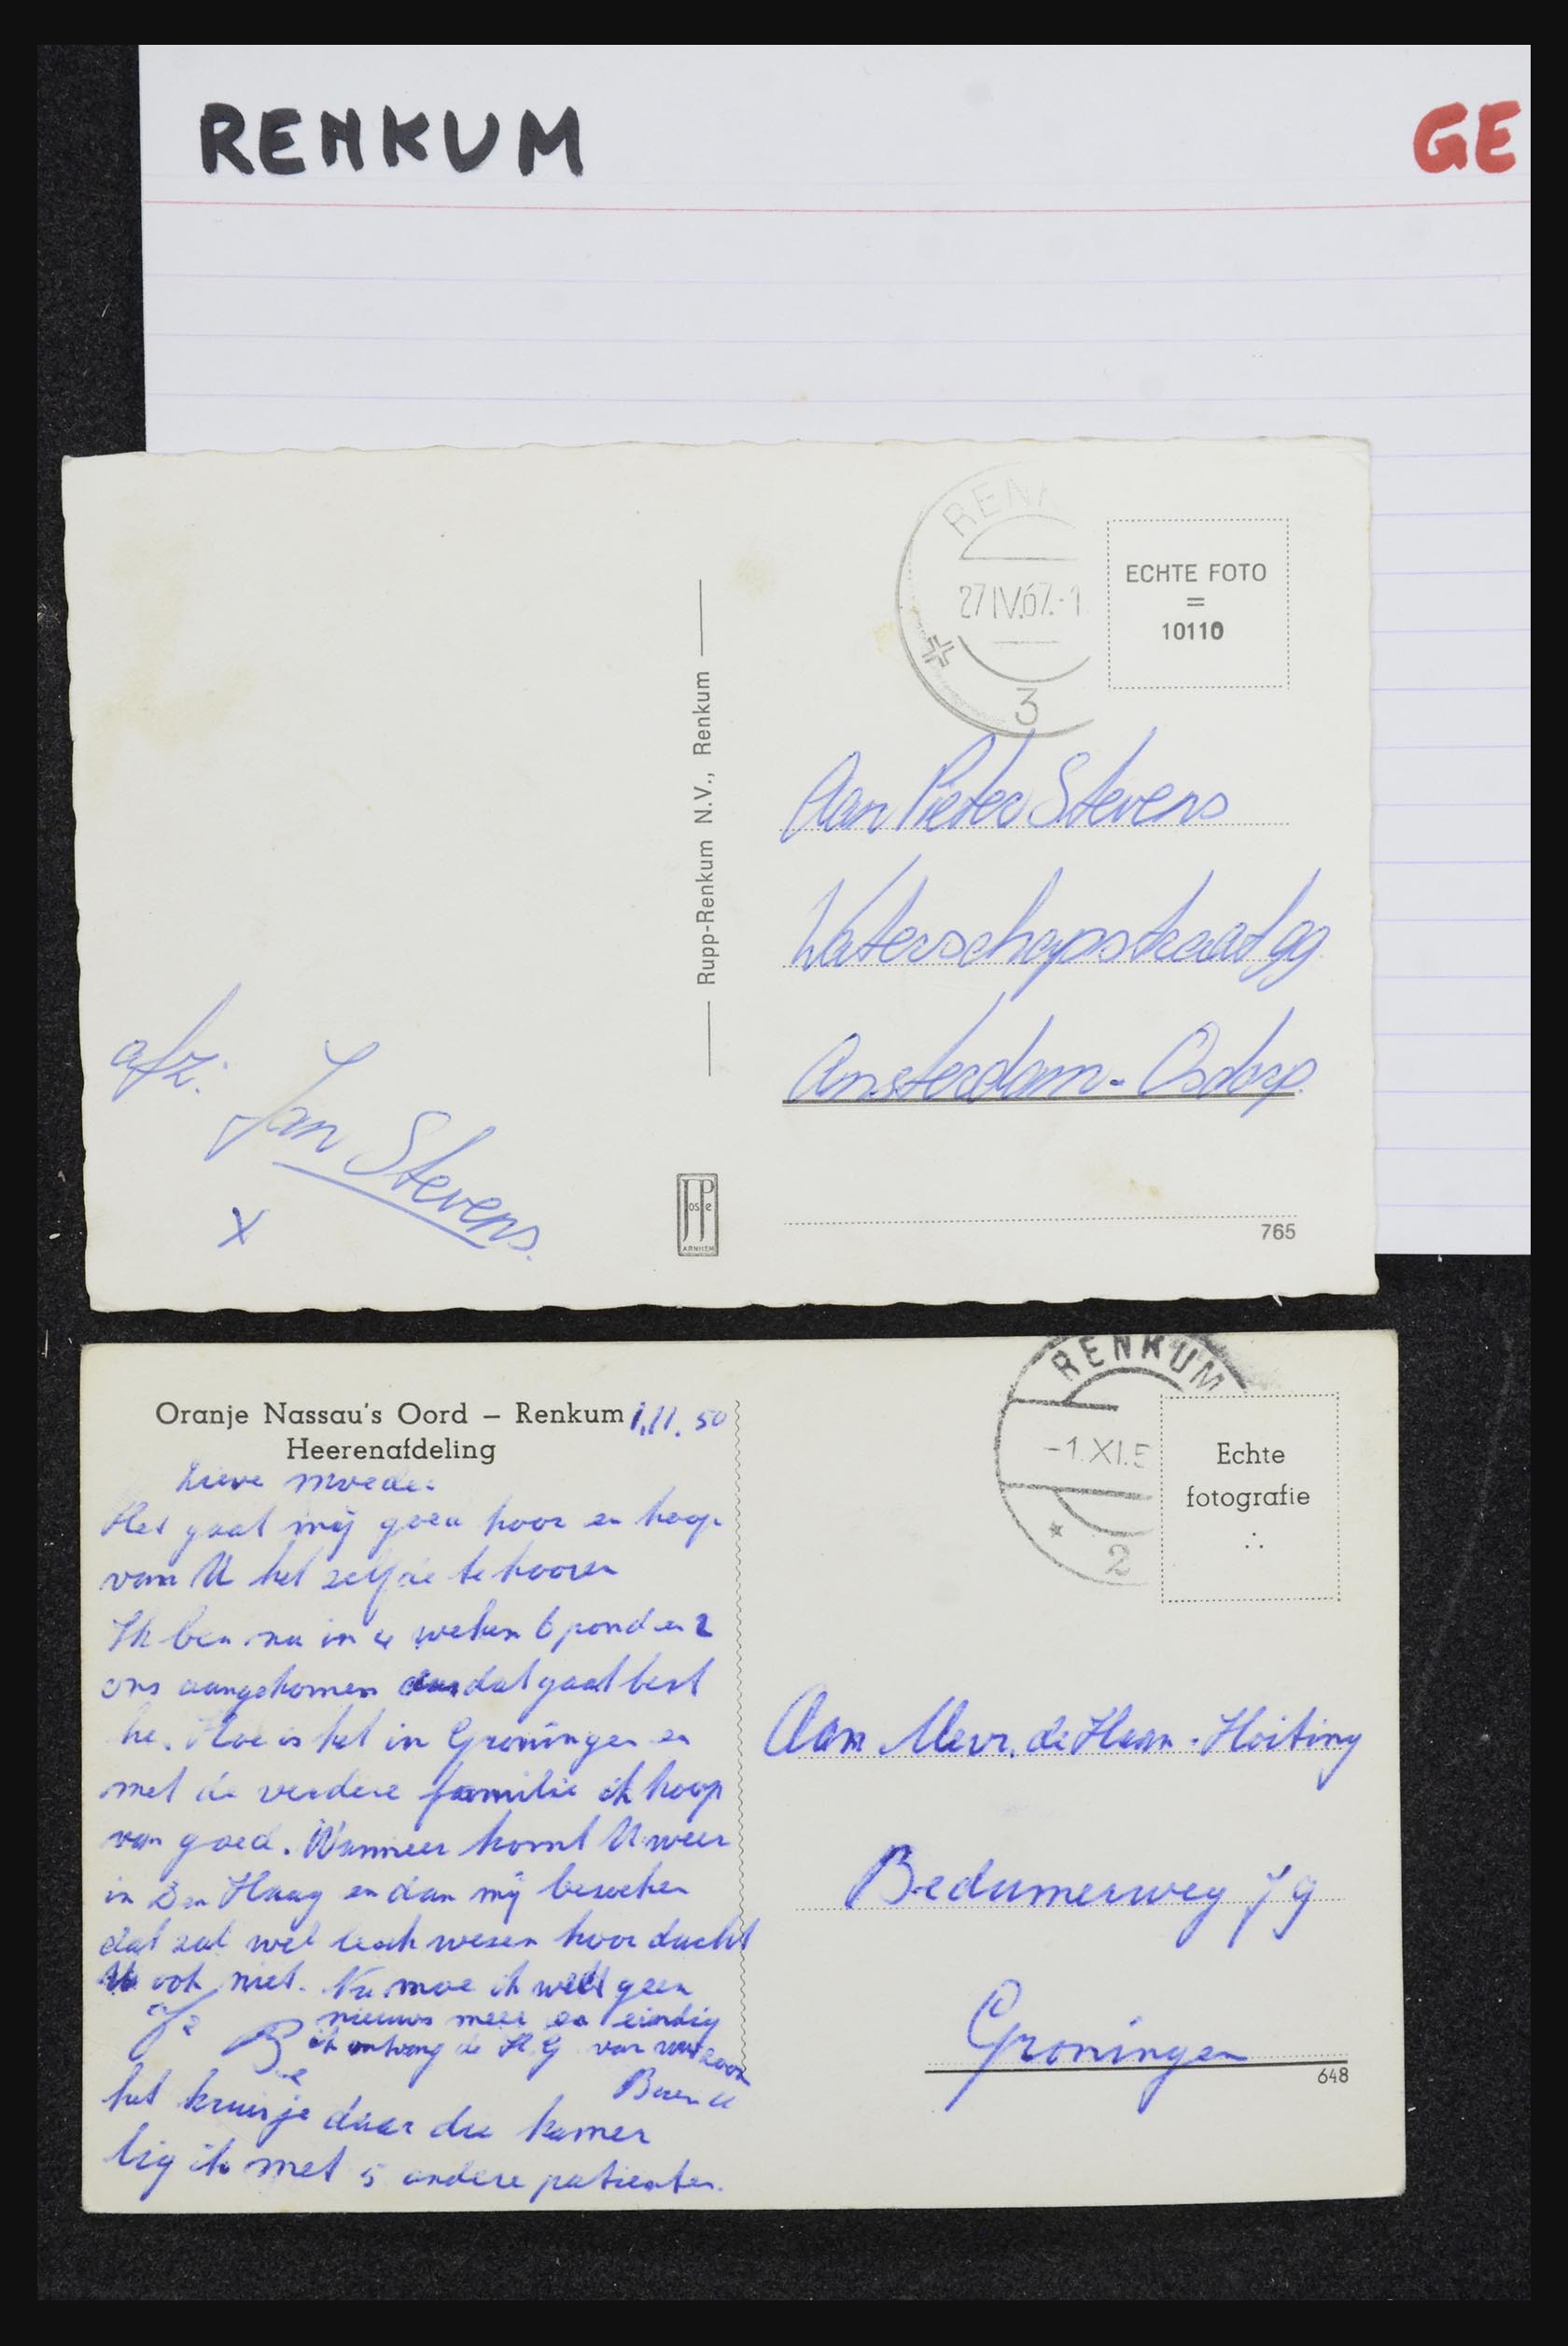 RENKUM
GE
RENK
27 IV.67.-1
3
ECHTE FOTO
=
10110
Rupp-Renkum N.V., Renkum
Aan Pieter Stevens
Waterschapstraat 99
Amsterdam-Osdorp.
afz:
Jan Stevens.
X
JosPe
ARNHEM
765
RENKUM
-1.XI.5
2
Echte
fotografie
Oranje Nassau's Oord – Renkum 1.11.50
Heerenafdeling
Lieve moeder
Het gaat mij goed hoor en hoop
van U het zelfde te hooren
Ik ben nu in 4 weken 6 pond en 2
ons aangekomen dus dat gaat best
he. Hoe is het in Groningen en
met de verdere familie ik hoop
van goed. Wanneer komt U weer
in Den Haag en dan mij bezoeken
dat zal wel leuk wezen hoor dacht
U ook niet. Nu moe ik weet geen
nieuws meer en eindig
ik ontvang de H.G. van uw zoon
Berend
het kruisje daar die kamer
lig ik met 5 andere patienten.
Aan Mevr. de Haan-Hoiting
Bedumerweg 79
Groningen
648